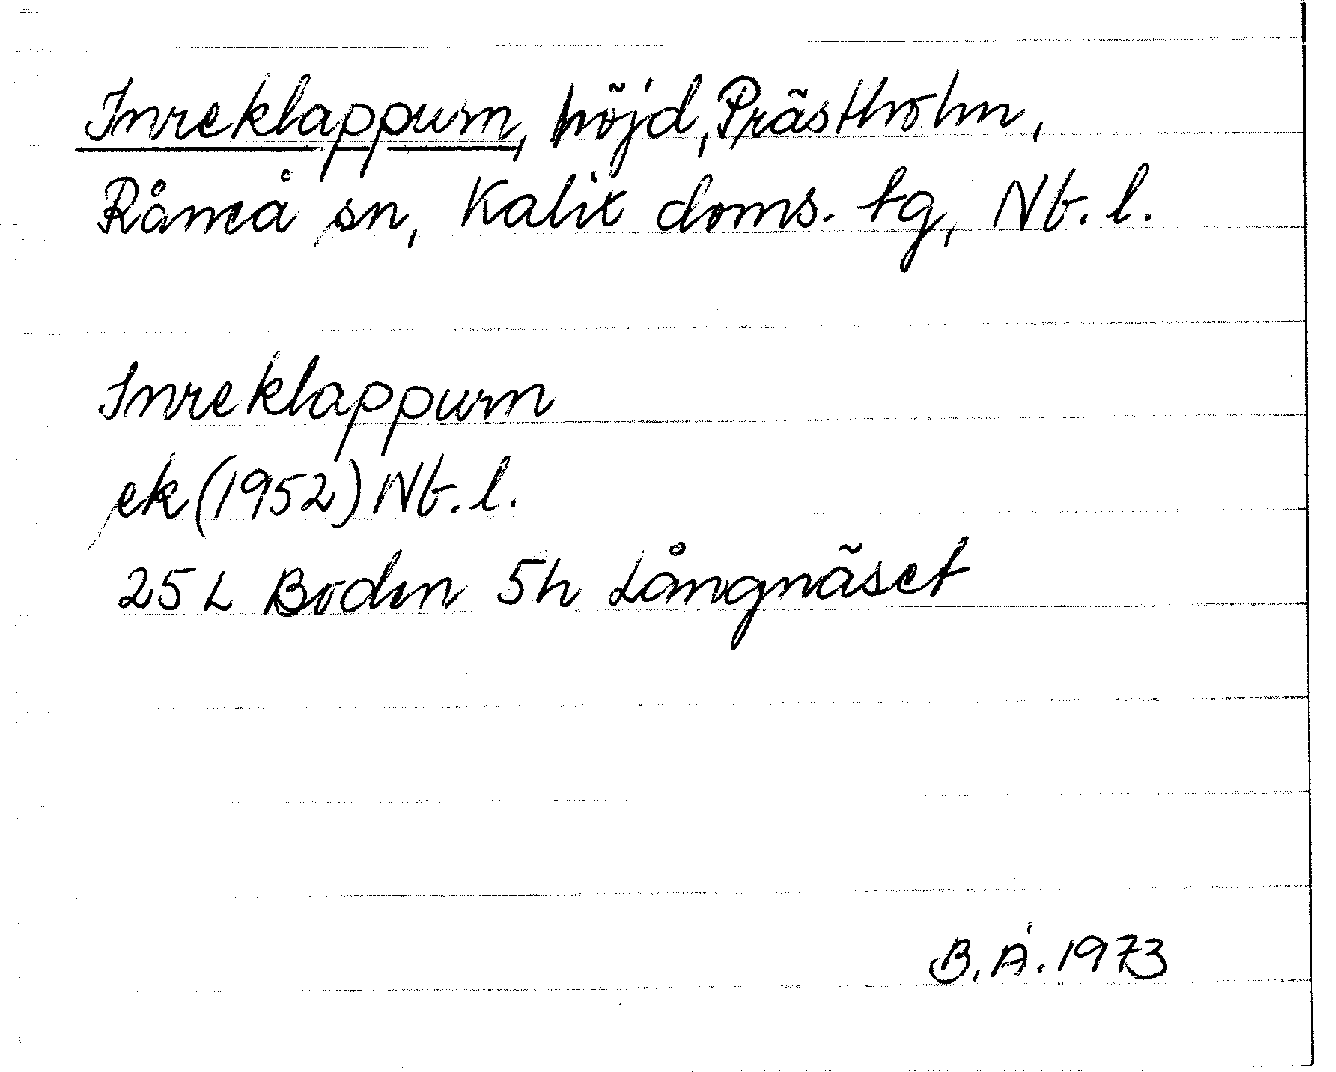 Inreklappurn, höjd, Prästholm,
Råneå sn, Kalix doms. tg, Nb. l.
Inreklappurn
ek (1952) Nb. l.
25 L Boden 5h Långnäset
B. Å. 1973